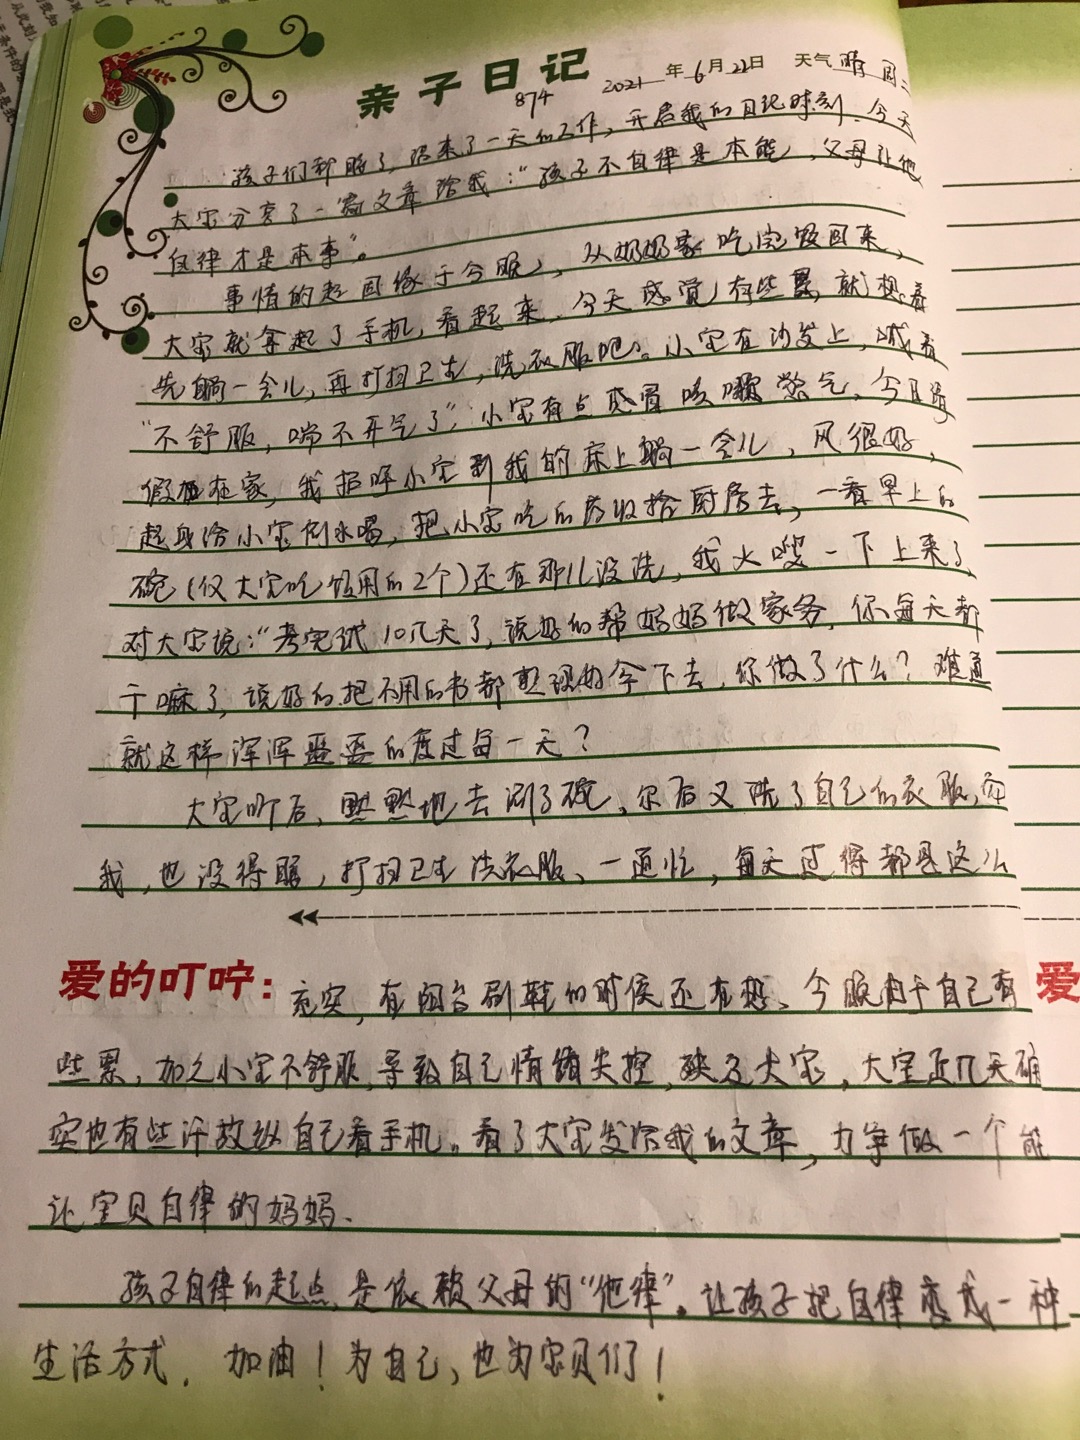 亲子日记
874
2021年6月22日 天气晴 周二
孩子们都睡了,结束了一天的工作,开启我的日记时刻、今天
大宝分享了一篇文章给我:“孩子不自律是本能,父母让他
自律才是本事”。
事情的起因缘于今晚,从奶奶家吃完饭回来,
大宝就拿起了手机,看起来、今天感觉有些累,就想着
先躺一会儿,再打扫卫生,洗衣服吧。小宝在沙发上,喊着
“不舒服,喘不开气了”,小宝有点感冒咳嗽憋气,今日请
假在家,我招呼小宝到我的床上躺一会儿,风很好,
起身给小宝倒水喝,把小宝吃的药收拾厨房去,一看早上的
碗(仅大宝吃饭用的2个)还在那儿没洗,我火嗖一下上来了
对大宝说:“考完试10几天了,说好的帮妈妈做家务,你每天都
干嘛了,说好的把不用的书都整理好拿下去,你做了什么?难道
就这样浑浑噩噩的度过每一天?
大宝听后,默默地去刷了碗、尔后又洗了自己的衣服,而
我,也没得闲,打扫卫生洗衣服、一通忙,每天过得都是这么
爱的叮咛:充实,在阳台刷鞋的时候还在想、今晚由于自己有
些累,加之小宝不舒服,导致自己情绪失控,殃及大宝,大宝近几天确
实也有些许放纵自己看手机。看了大宝发给我的文章,力争做一个能
让宝贝自律的妈妈、
孩子自律的起点,是依赖父母的“他律”。让孩子把自律变成一种
生活方式,加油!为自己,也为宝贝们!
爱